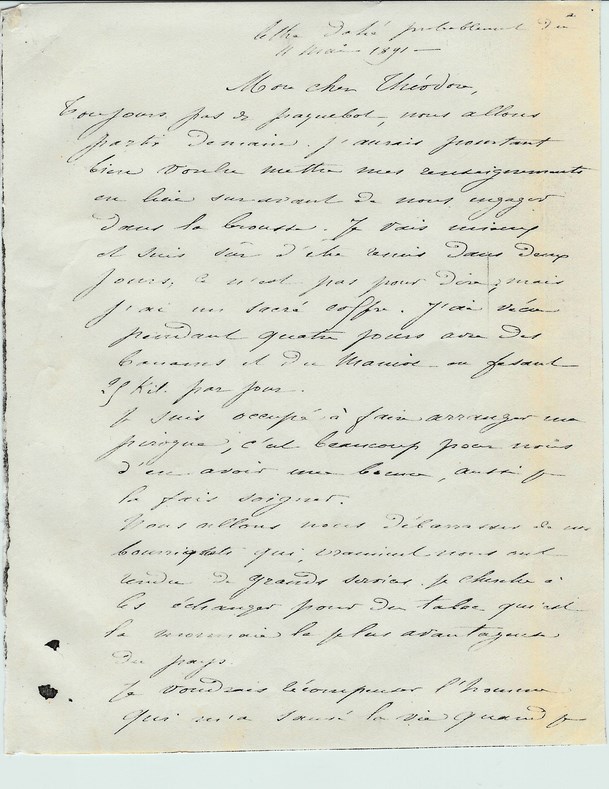 Lettre datée probablement du
11 mai 1891 —
Mon cher Théodore,
Toujours pas de paquebot, nous allons
partir demain. J'aurais pourtant
bien voulu mettre mes renseignements
en lieu sur avant de nous engager
dans la brousse. Je vais mieux
et suis sûr d'être remis dans deux
jours, ce n'est pas pour dire, mais
j'ai un sacré coffre. J'ai vécu
pendant quatre jours avec des
bananes et du Manioc en fesant
25 Kil. par jour.
Je suis occupé à faire arranger une
pirogue, c'est beaucoup pour nous
d'en avoir une bonne, aussi je
la fais soigner.
Nous allons nous débarrasser de nos
bourriquots qui, vraiment nous ont
rendu de grands services. Je cherche à
les échanger pour du tabac qui est
la monnaie la plus avantageuse
du pays.
Je voudrais récompenser l'homme
qui m'a sauvé la vie quand je